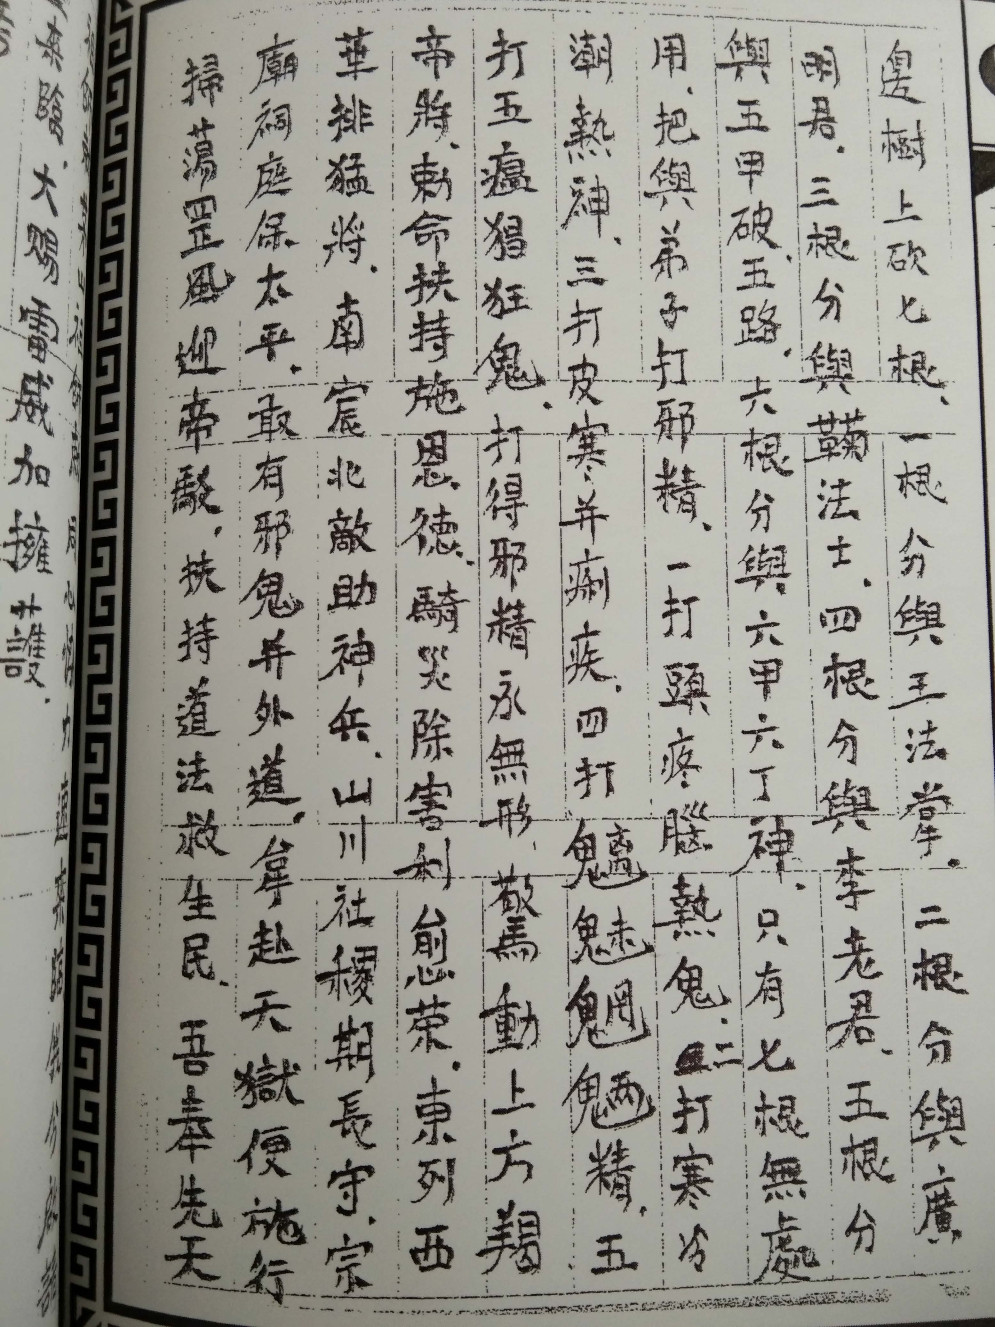 邊樹上砍七根、一根分與王法掌。二根分與廣
明君、三根分與鞠法士、四根分與李老君、五根分
與五甲破五路、六根分與六甲六丁神、只有七根無處
用、把與弟子打邪精、一打頭疼腦熱鬼、二打寒冷
潮熱神、三打皮寒并痢疾、四打魑魅魍魎精、五
打五瘟猖狂鬼、打得邪精永無形、驚動上方羯
帝將、敕命扶持施恩德、驅災除害利 榮、東列西
華排猛將、南宸北敵助神兵、山川社稷期長守、宗
廟祠庭保太平、敢有邪鬼并外道、拿赴天獄便施行
掃蕩罡風迎帝駁、扶持道法救生民、吾奉先天
其險、大賜雷威加擁護、